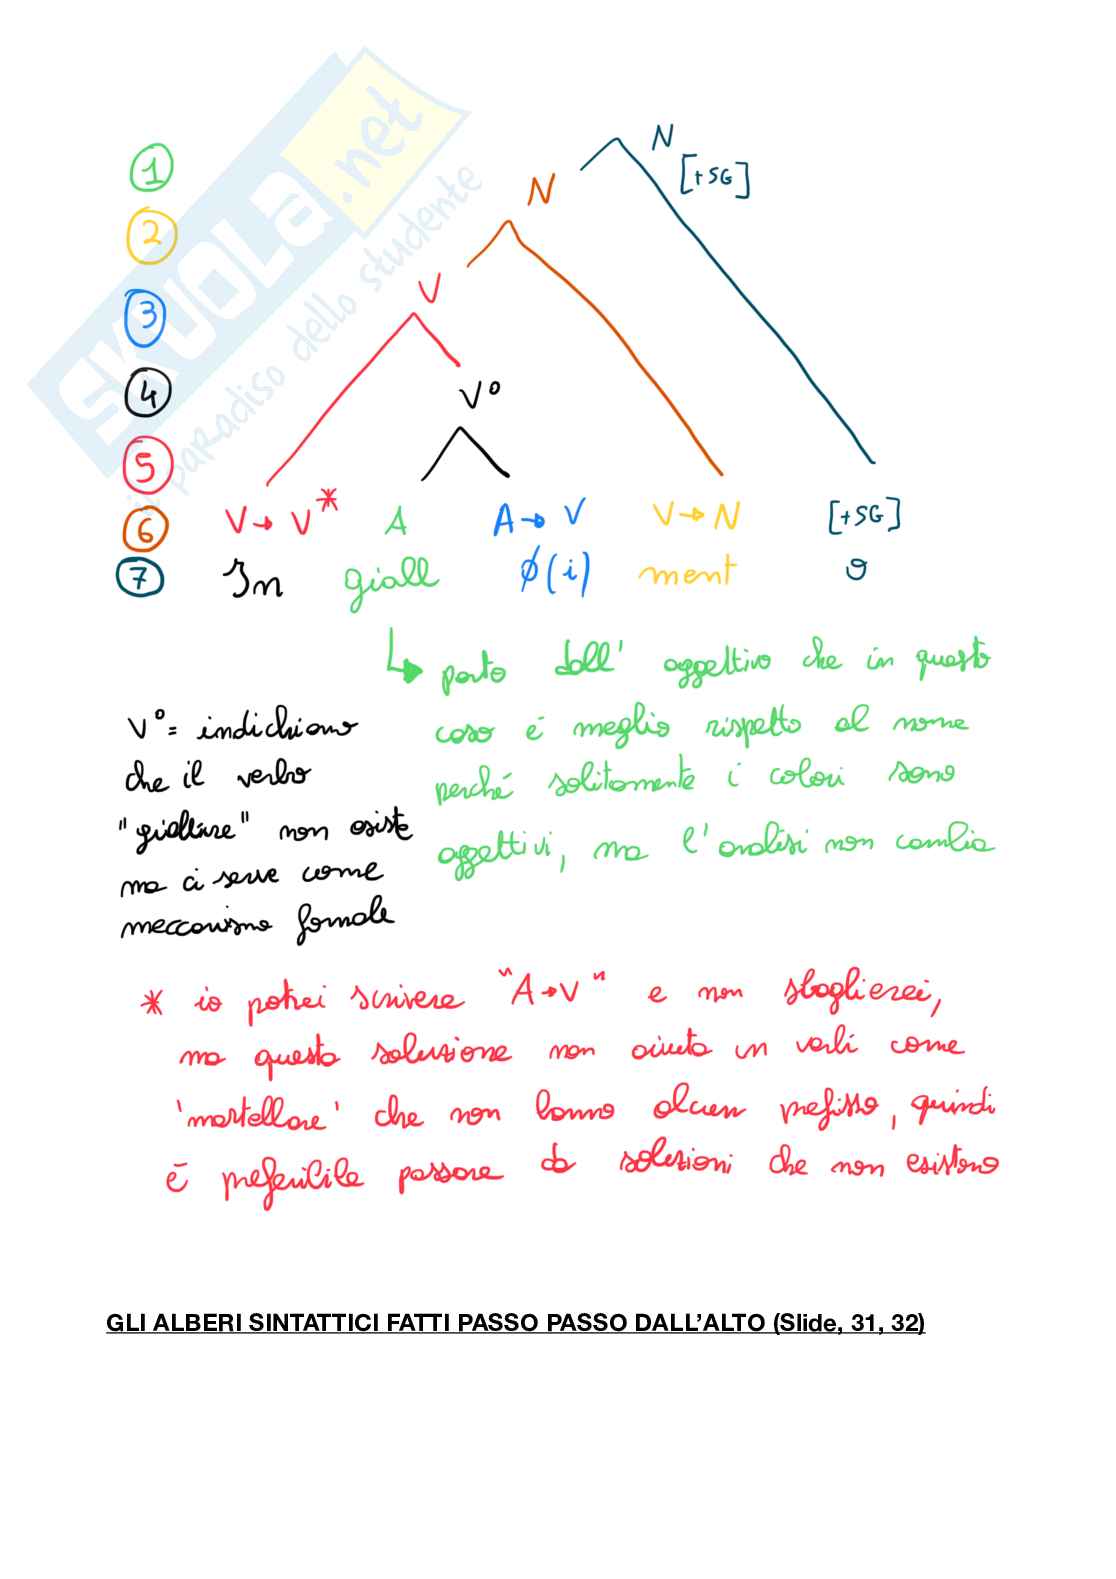 SKUOLA.net
il paradiso dello studente
1
2
3
4
5
6
7
N
[+SG]
N
V
V°
V→V* A A→V V→N [+SG]
In giall ∅(i) ment o
parto dall' aggettivo che in questo
caso é meglio rispetto al nome
perché solitamente i colori sono
aggettivi, ma l'analisi non cambia
V° = indichiamo
che il verbo
"giallire" non esiste
ma ci serve come
meccanismo formale
* io potrei scrivere "A→V" e non sbaglierei,
ma questa soluzione non aiuta in verbi come
'martellare' che non hanno alcun prefisso, quindi
è preferibile passare da soluzioni che non esistono
GLI ALBERI SINTATTICI FATTI PASSO PASSO DALL'ALTO (Slide, 31, 32)